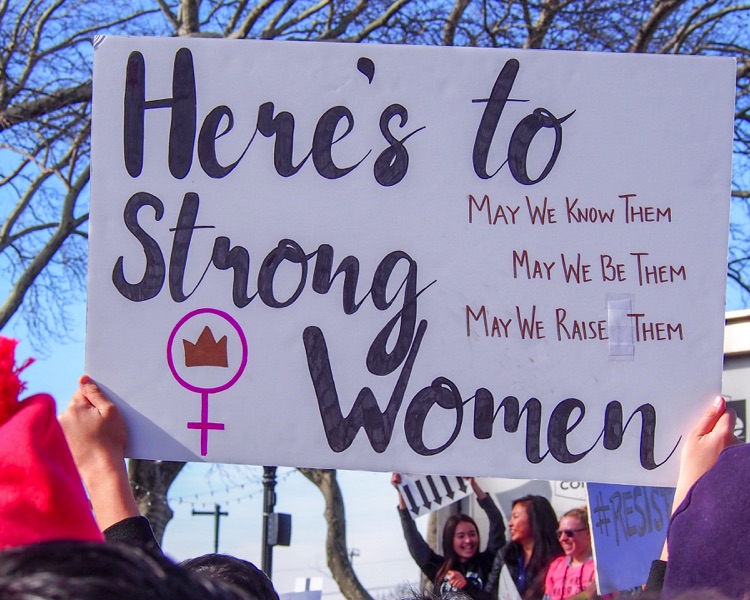 Here's to
Strong
Women
May We Know Them
May We Be Them
May We Raise Them
#RESIST